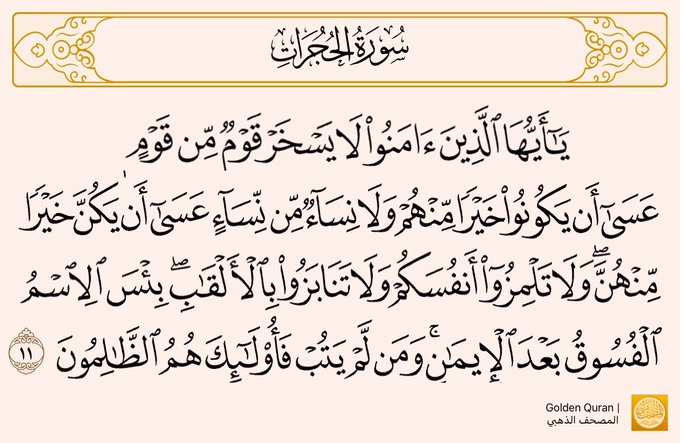 سُورَةُ الحُجُرَاتِ
يَـٰٓأَيُّهَا ٱلَّذِينَ ءَامَنُوا۟ لَا يَسْخَرْ قَوْمٌ مِّن قَوْمٍ
عَسَىٰٓ أَن يَكُونُوا۟ خَيْرًا مِّنْهُمْ وَلَا نِسَآءٌ مِّن نِّسَآءٍ عَسَىٰٓ أَن يَكُنَّ خَيْرًا
مِّنْهُنَّ ۖ وَلَا تَلْمِزُوٓا۟ أَنفُسَكُمْ وَلَا تَنَابَزُوا۟ بِٱلْأَلْقَـٰبِ ۖ بِئْسَ ٱلِٱسْمُ
ٱلْفُسُوقُ بَعْدَ ٱلْإِيمَـٰنِ ۚ وَمَن لَّمْ يَتُبْ فَأُو۟لَـٰٓئِكَ هُمُ ٱلظَّـٰلِمُونَ ١١
Golden Quran |
المصحف الذهبي